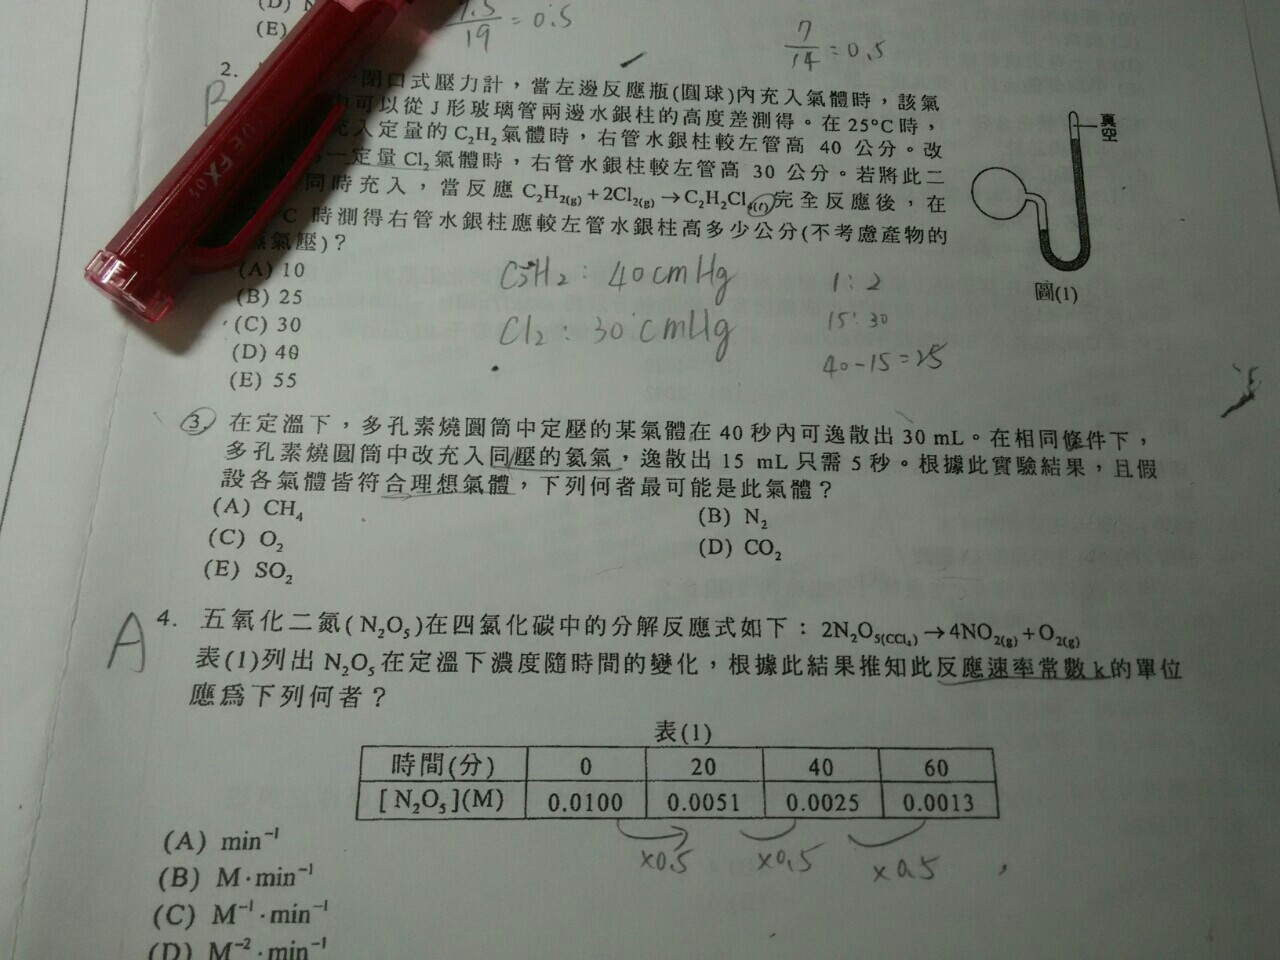 (D) N
(E)
7.5/19 = 0.5
7/14 = 0.5
2.
閉口式壓力計，當左邊反應瓶(圓球)內充入氣體時，該氣
可以從J形玻璃管兩邊水銀柱的高度差測得。在25°C時，
入定量的C₂H₂氣體時，右管水銀柱較左管高 40 公分。改
一定量 Cl₂氣體時，右管水銀柱較左管高 30 公分。若將此二
同時充入，當反應 C₂H₂(g)+2Cl₂(g)→C₂H₂Cl₄(ℓ)完全反應後，在
C 時測得右管水銀柱應較左管水銀柱高多少公分(不考慮產物的
蒸氣壓)？
(A) 10
(B) 25
(C) 30
(D) 40
(E) 55
真空
圖(1)
B
C₂H₂ : 40cmHg
Cl₂ : 30cmHg
1:2
15:30
40-15=25
3. 在定溫下，多孔素燒圓筒中定壓的某氣體在 40 秒內可逸散出 30 mL。在相同條件下，
多孔素燒圓筒中改充入同壓的氦氣，逸散出 15 mL 只需 5 秒。根據此實驗結果，且假
設各氣體皆符合理想氣體，下列何者最可能是此氣體？
(A) CH₄
(B) N₂
(C) O₂
(D) CO₂
(E) SO₂
A
4. 五氧化二氮(N₂O₅)在四氯化碳中的分解反應式如下：2N₂O₅(CCl₄)→4NO₂(g)+O₂(g)
表(1)列出 N₂O₅在定溫下濃度隨時間的變化，根據此結果推知此反應速率常數 k的單位
應為下列何者？
表(1)
時間(分) 0 20 40 60
[N₂O₅](M) 0.0100 0.0051 0.0025 0.0013
×0.5 ×0.5 ×0.5
(A) min⁻¹
(B) M·min⁻¹
(C) M⁻¹·min⁻¹
(D) M⁻²·min⁻¹